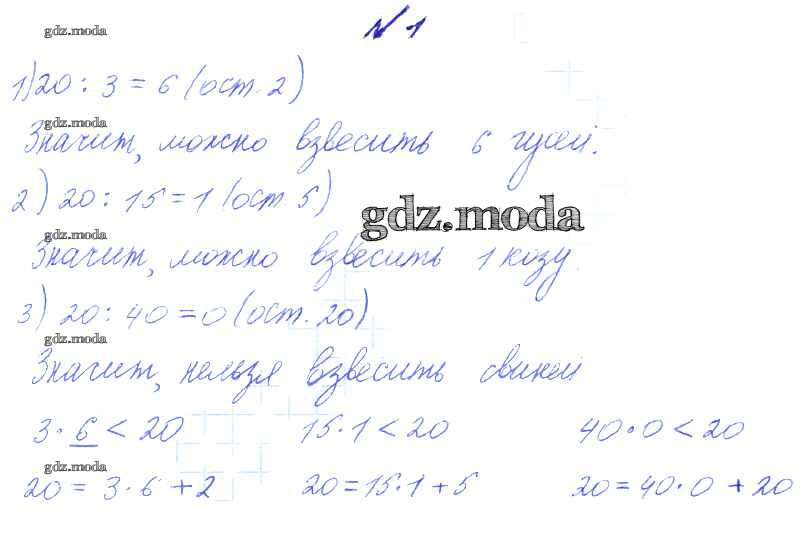 gdz.moda
№ 1
1) 20 : 3 = 6 (ост. 2)
gdz.moda
Значит, можно взвесить 6 гусей.
2) 20 : 15 = 1 (ост. 5)
gdz.moda
gdz.moda
Значит, можно взвесить 1 козу.
3) 20 : 40 = 0 (ост. 20)
gdz.moda
Значит, нельзя взвесить свиней
3 · 6 < 20 15 · 1 < 20 40 · 0 < 20
gdz.moda
20 = 3 · 6 + 2 20 = 15 · 1 + 5 20 = 40 · 0 + 20